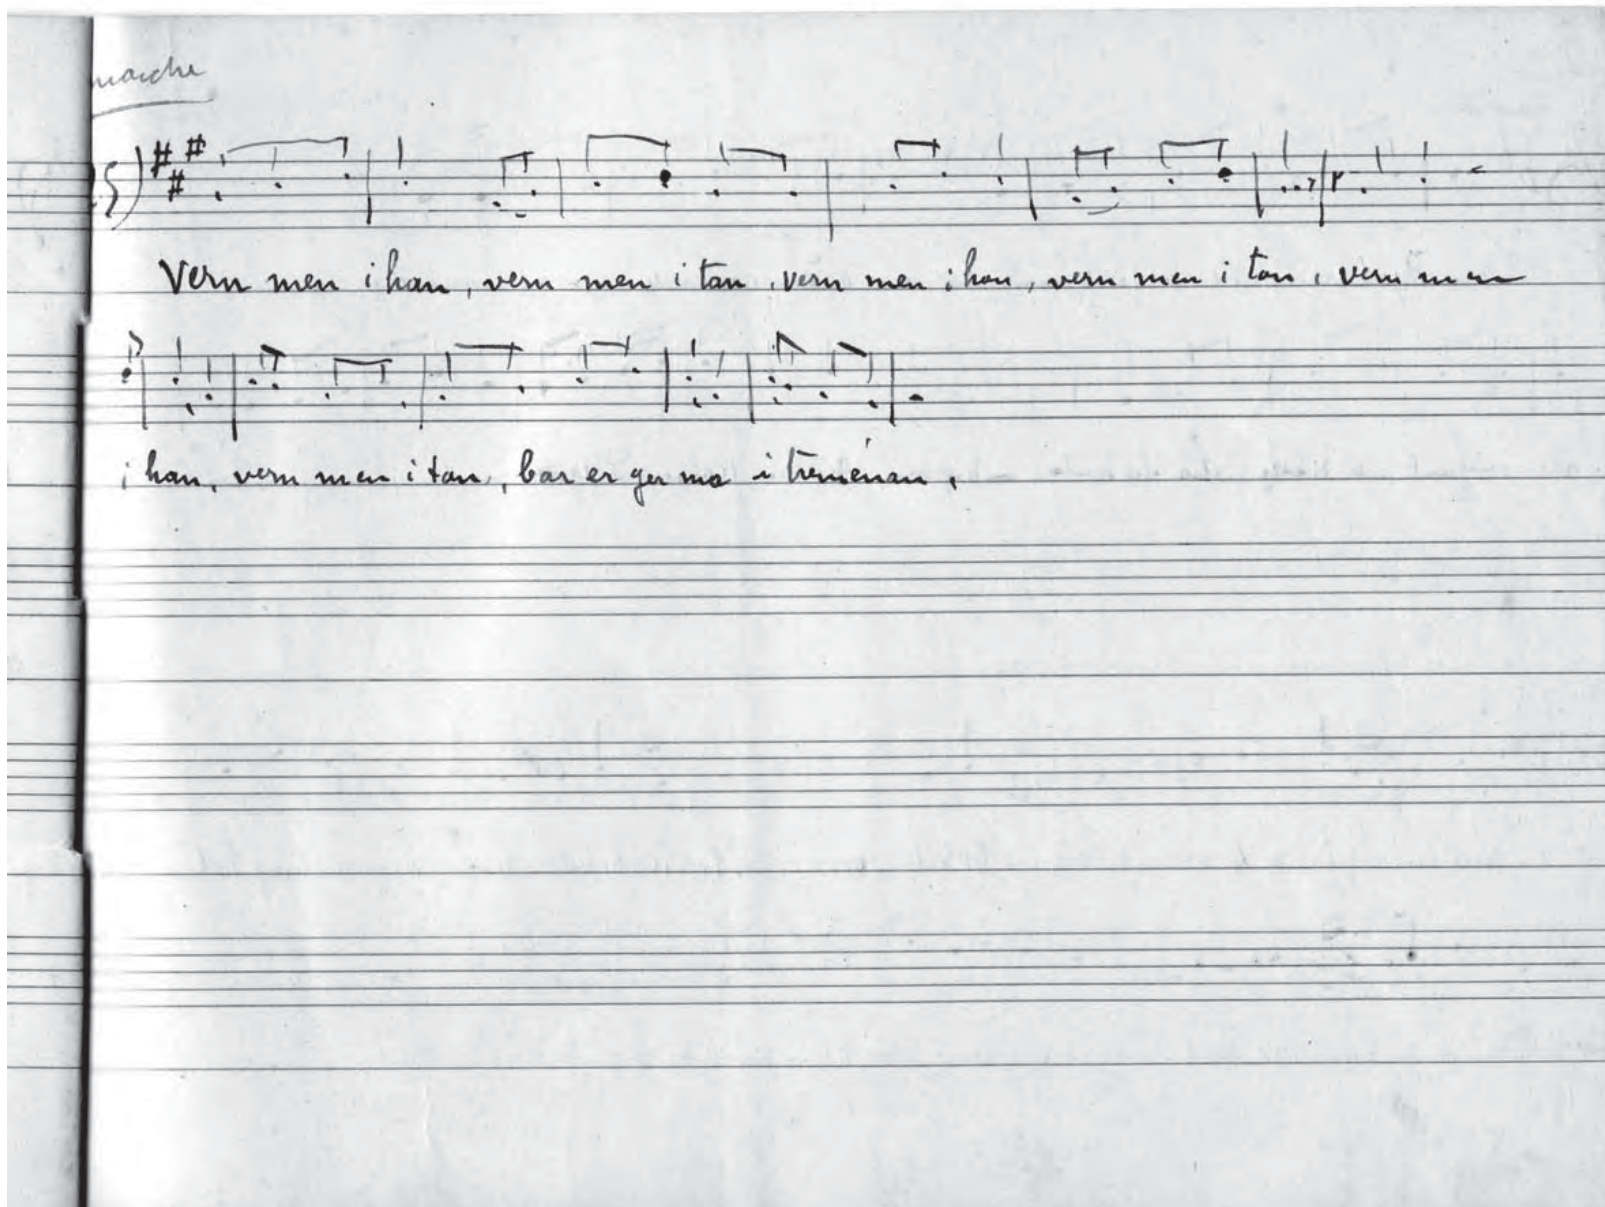 marche
Vern men i han, vern men i tan, vern men i han, vern men i tan, vern men
i han, vern men i tan, bar er ger ma i treménan,